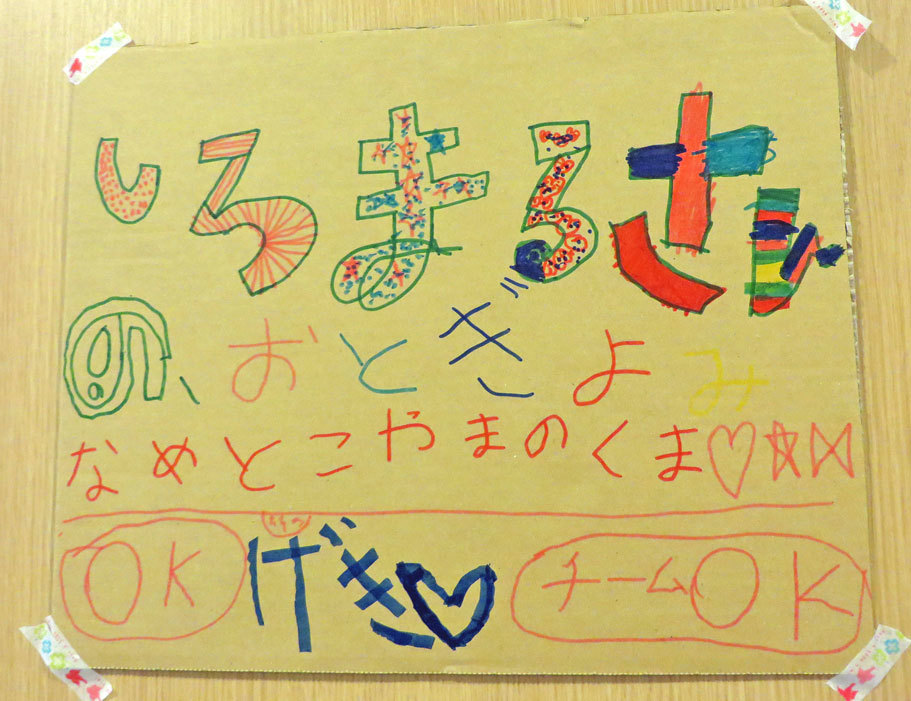 しろまるさん
の、おとぎよみ
なめとこやまのくま♡☆
OK げき♡ チームOK